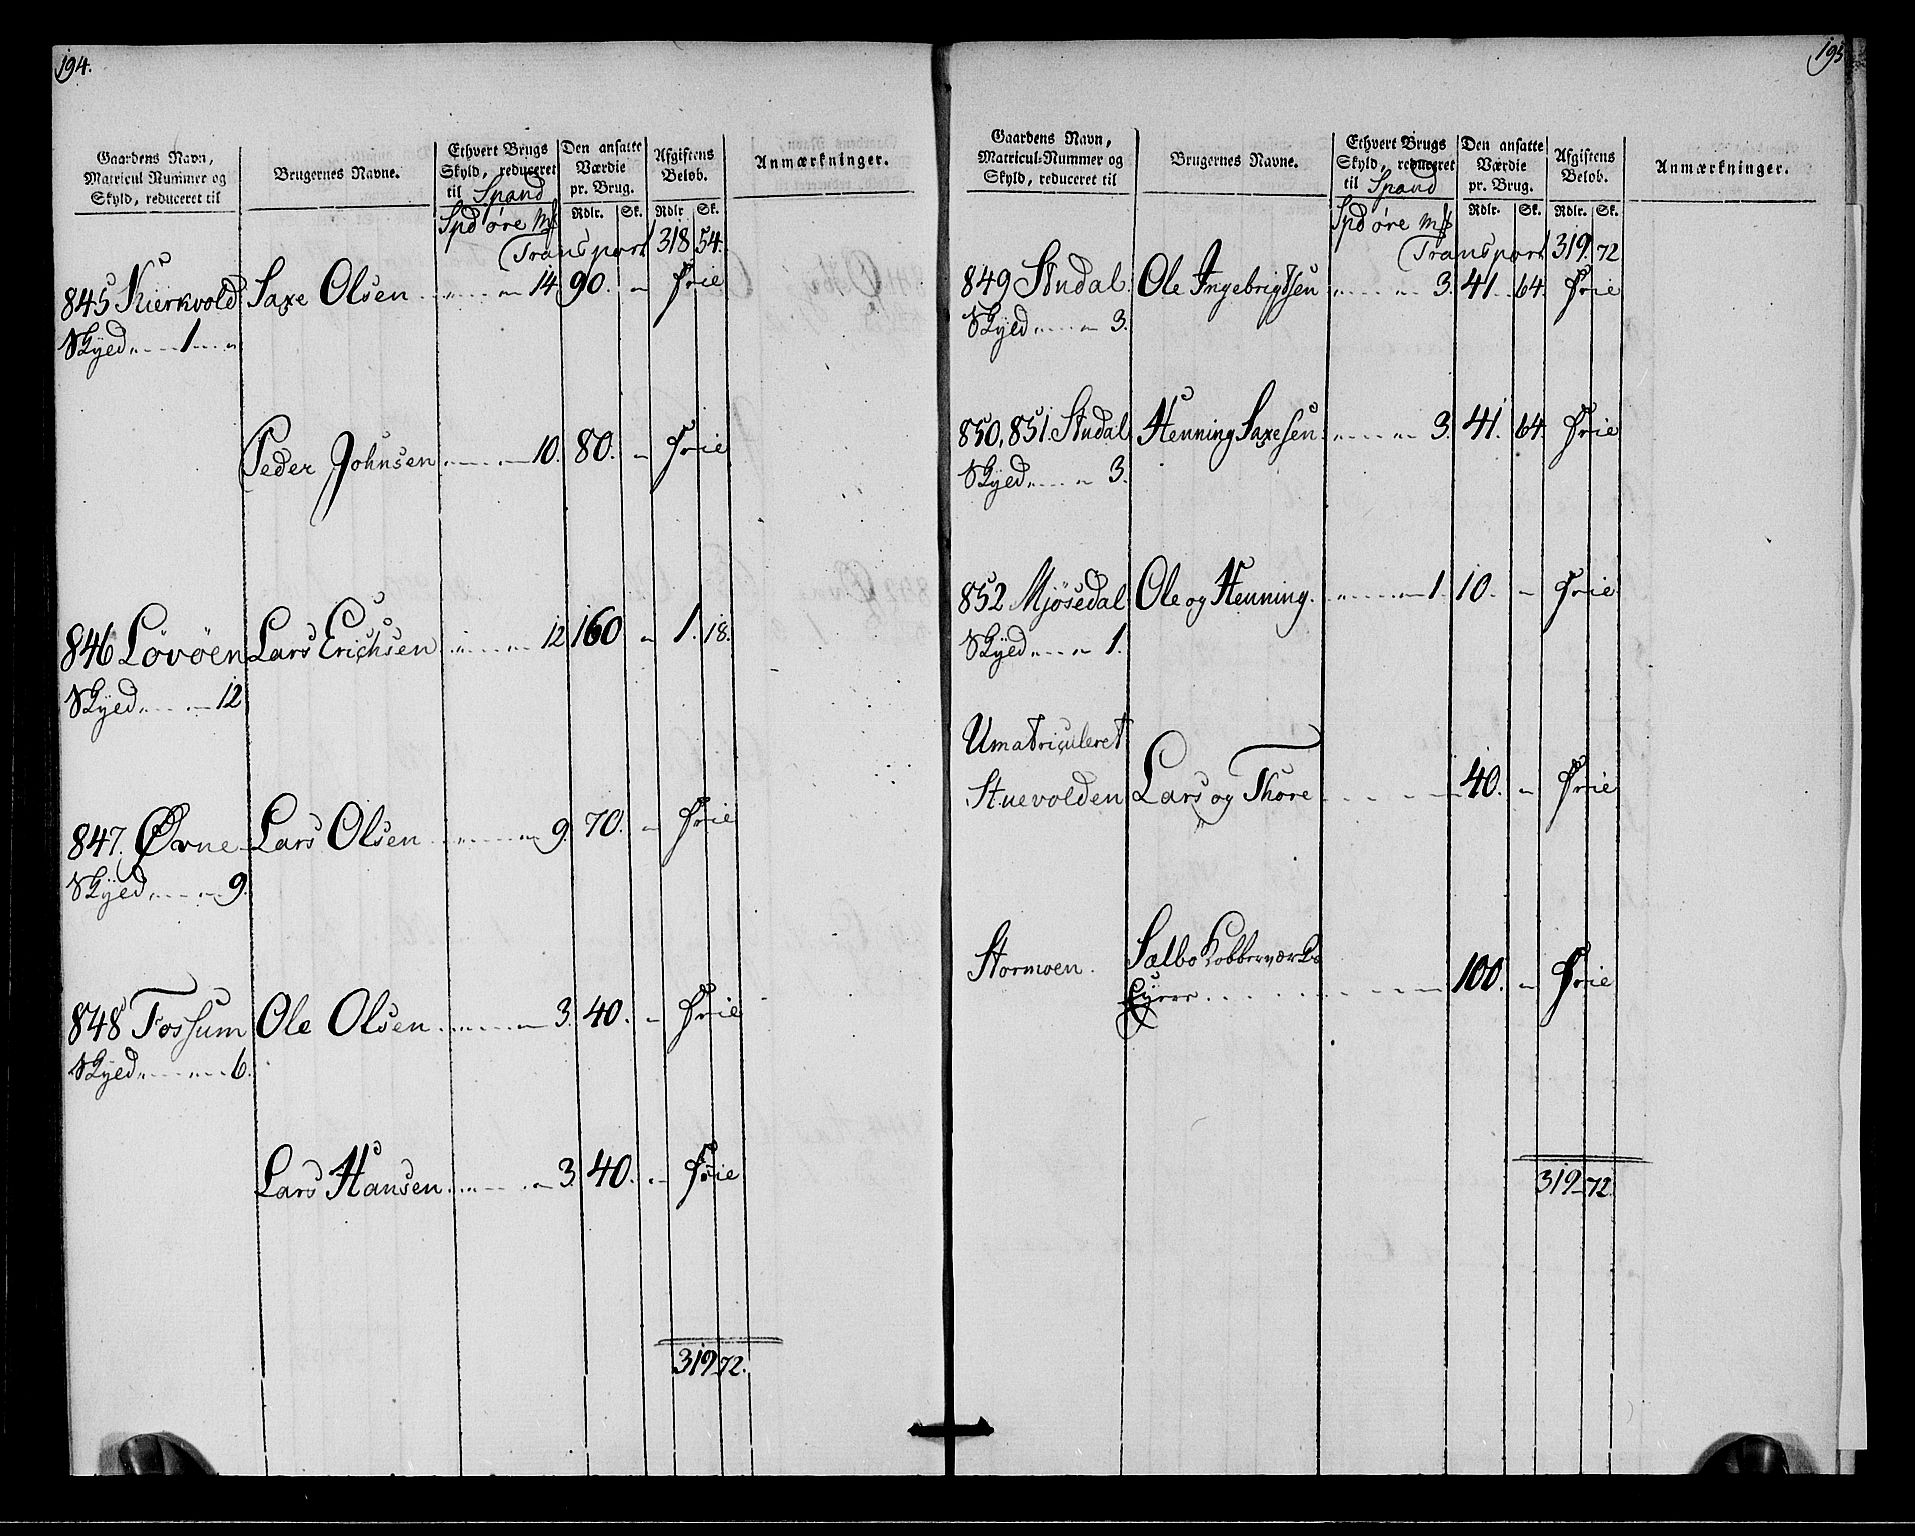 194.
Gaardens Navn, Matricul Nummer og Skyld, reduceret til
Brugernes Navne.
Ethvert Brugs Skyld, reduceret til Spand
Den ansatte Værdie pr. Brug.
Afgiftens Beløb.
Anmærkninger.
Spd øre Mk
Rdlr. Sk. Rdlr Sk.
Transport 318 54.
845 Kierkvold Saxe Olsen 14 90. Frie
Skyed 1
Peder Johnsen 10. 80. Frie
846 Løvøen Lars Erichsen 12 160 1. 18.
Skyed 12
847. Øvne Lars Olsen 9. 70. Frie
Skyed 9.
848 Fossum Ole Olsen 3. 40. Frie
Skyed 6.
Lars Hansen 3. 40. Frie
319 72.
195
Gaardens Navn, Matricul-Nummer og Skyld, reduceret til
Brugernes Navne.
Ethvert Brugs Skyld, reduceret til Spand
Den ansatte Værdie pr. Brug.
Afgiftens Beløb.
Anmærkninger.
Spd øre Mk
Rdlr. Sk. Rdlr. Sk.
Transport 319. 72
849 Studal Ole Ingebrigtsen 3. 41. 64. Frie
Skyed 3.
850, 851. Studal Henning Saxesen 3. 41. 64. Frie
Skyed 3.
852 Mjøsedal Ole og Henning. 1. 10. Frie
Skyed 1.
Umatriculeret
Stuevolden Lars og Thore 40. Frie
Stormoen. Sælbo Kobberværks
Eyere 100. Frie
319 72.